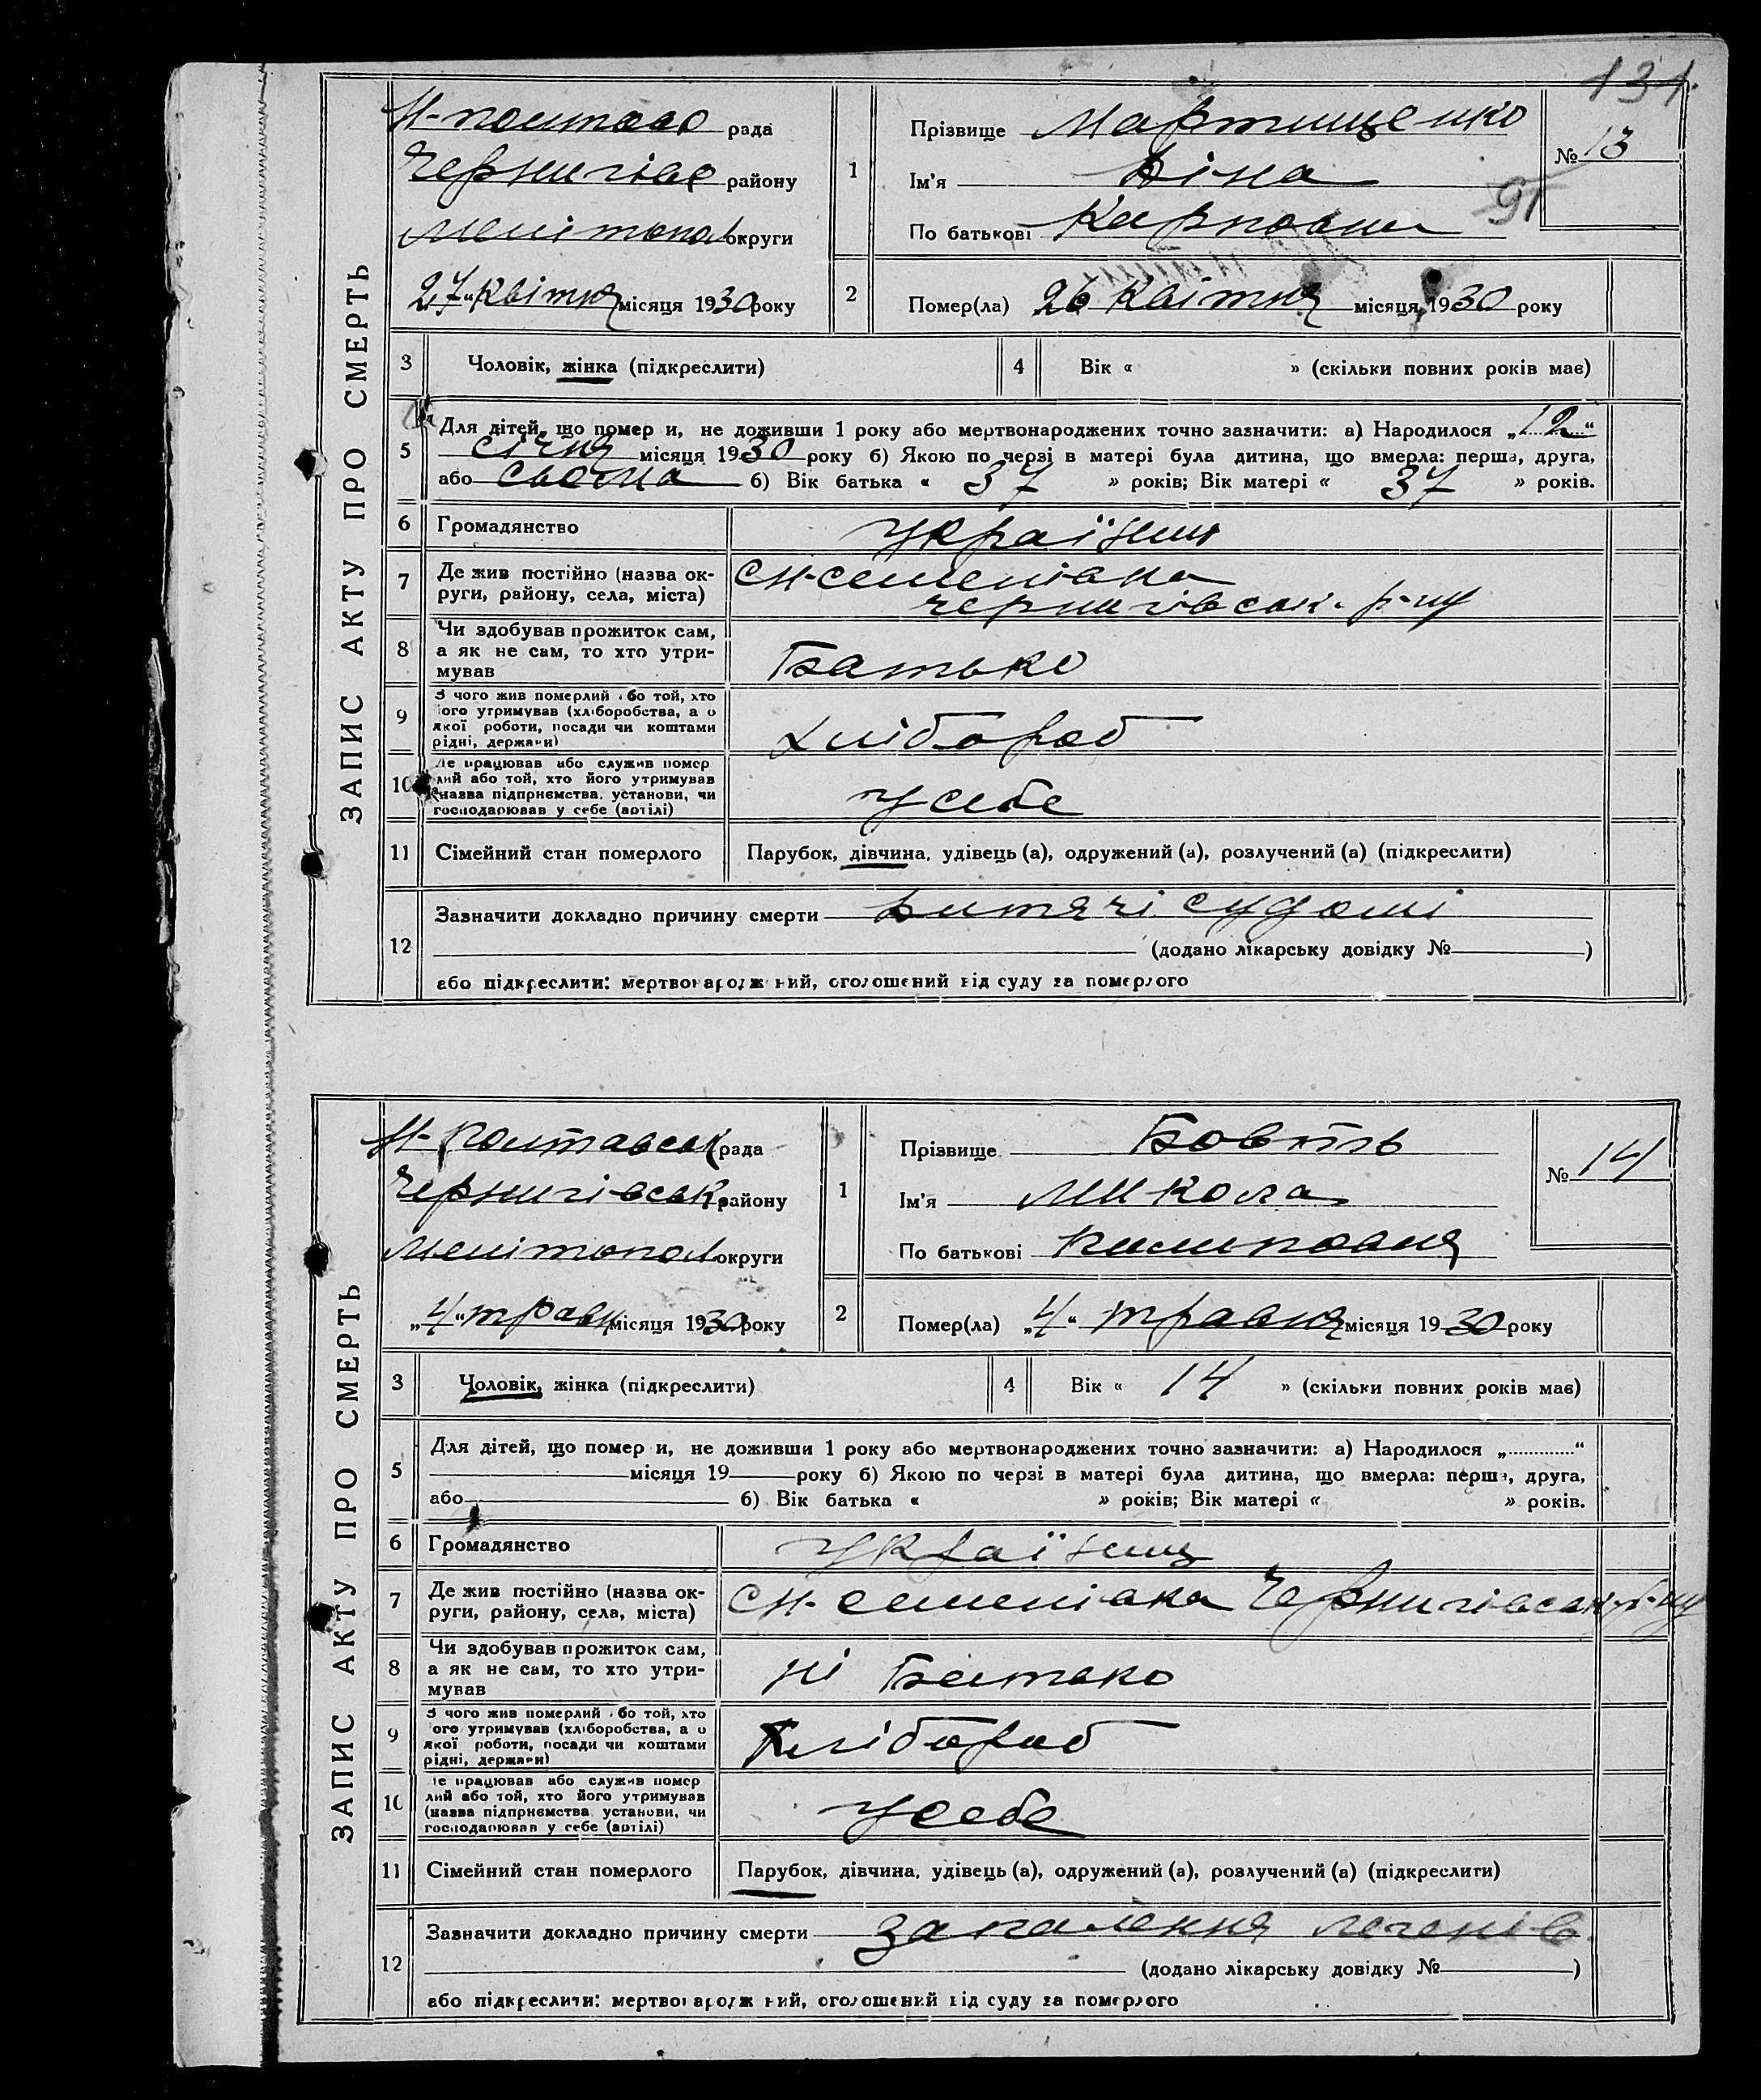 131.
ЗАПИС АКТУ ПРО СМЕРТЬ
Н-полтавс рада
Чернигівс району
Мелітопол округи
27 „Квітня місяця 1930 року
1
Прізвище Мартищенко
Ім'я Ніна
По батькові Карповна
№ 13
91
2
Помер(ла) 26 Квітня місяця 1930 року
3 Чоловік, жінка (підкреслити)
4 Вік « » (скільки повних років має)
5 Для дітей, що помер и, не доживши 1 року або мертвонароджених точно зазначити: а) Народилося „12“
січня місяця 1930 року б) Якою по черзі в матері була дитина, що вмерла: перша, друга,
або сьома б) Вік батька « 37 » років; Вік матері « 37 » років.
6 Громадянство Україн
7 Де жив постійно (назва ок-
руги, району, села, міста)
с Н-семенівка
Чернигівськ. р-ну
8 Чи здобував прожиток сам,
а як не сам, то хто утри-
мував
Батько
9 З чого жив померлий бо той, хто
ого утримував (хліборобства, а о
якої роботи, посади чи коштами
рідні, держави)
Хлібороб
10 Де працював або служив помер
лий або той, хто його утримував
(назва підприємства, установи, чи
господарював у себе (артілі)
У себе
11 Сімейний стан померлого Парубок, дівчина, удівець (а), одружений (а), розлучений (а) (підкреслити)
12 Зазначити докладно причину смерти Дитячі судомі
(додано лікарську довідку № )
або підкреслити: мертвонароджений, оголошений від суду за померлого
ЗАПИС АКТУ ПРО СМЕРТЬ
Н-Полтавськ рада
Чернигівськ. району
Мелітопол округи
„4“ травн місяця 1930 року
1
Прізвище
Ім'я Микола
По батькові
№ 14
2
Помер(ла) „4“ травня місяця 1930 року
3 Чоловік, жінка (підкреслити)
4 Вік « 14 » (скільки повних років має)
5 Для дітей, що помер и, не доживши 1 року або мертвонароджених точно зазначити: а) Народилося „ “
місяця 19 року б) Якою по черзі в матері була дитина, що вмерла: перша, друга,
або б) Вік батька « » років; Вік матері « » років.
6 Громадянство Україн
7 Де жив постійно (назва ок-
руги, району, села, міста)
с Н-семенівка Чернигівськ. р-ну
8 Чи здобував прожиток сам,
а як не сам, то хто утри-
мував
Ні Батько
9 З чого жив померлий бо той, хто
ого утримував (хліборобства, а о
якої роботи, посади чи коштами
рідні, держави)
Хлібороб
10 Де працював або служив помер
лий або той, хто його утримував
(назва підприємства, установи, чи
господарював у себе (артілі)
У себе
11 Сімейний стан померлого Парубок, дівчина, удівець (а), одружений (а), розлучений (а) (підкреслити)
12 Зазначити докладно причину смерти Запалення легенів.
(додано лікарську довідку № )
або підкреслити: мертвонароджений, оголошений від суду за померлого